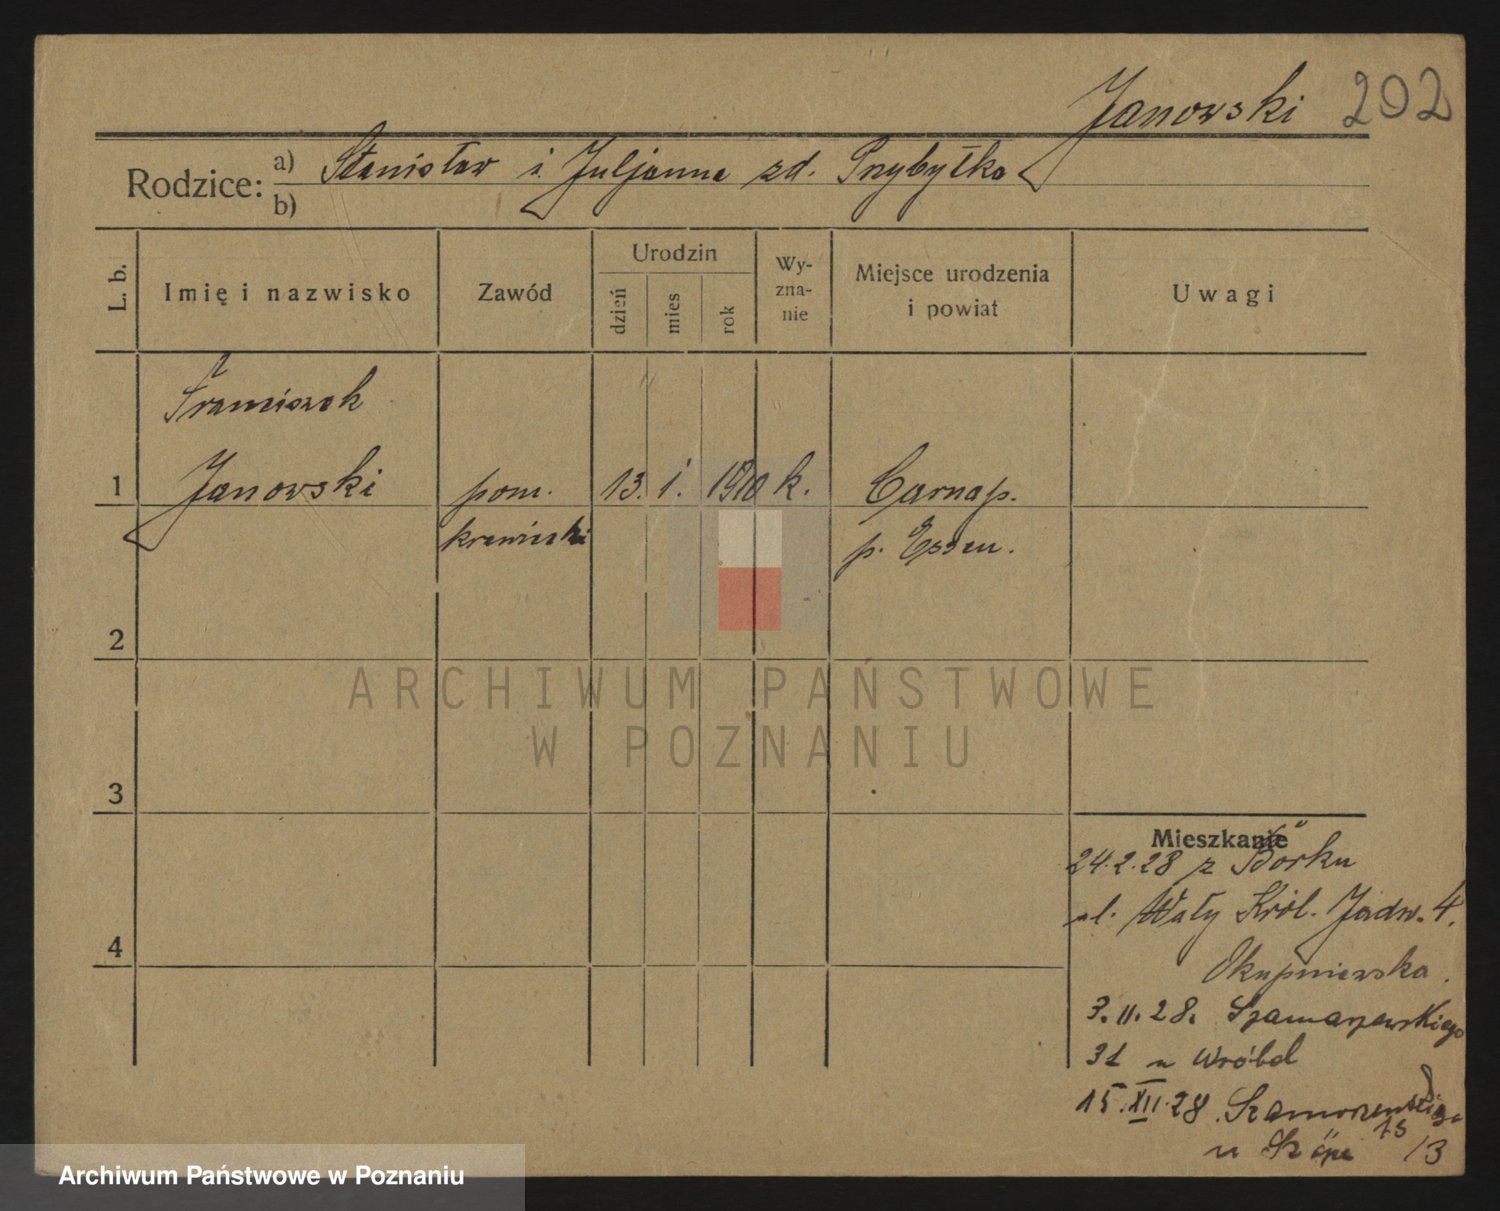 Janowski 202
Rodzice: a) Stanisław i Juljanna zd. Przybyłka
b)
L. b. Imię i nazwisko Zawód Urodzin dzień mies rok Wy-zna-nie Miejsce urodzenia i powiat Uwagi
Franciszek
1 Janowski pom. 13. i. 1910 k. Carnap.
krawiecki p. Essen.
2
ARCHIWUM PAŃSTWOWE
W POZNANIU
3
Mieszkanie
24.2.28 z Borku
ul. Wały Król. Jadw. 4.
4
Okupniewska.
3.11.28. Szamarzewskiego
31 u Wróbel
15.XII.28.
u
13
Archiwum Państwowe w Poznaniu